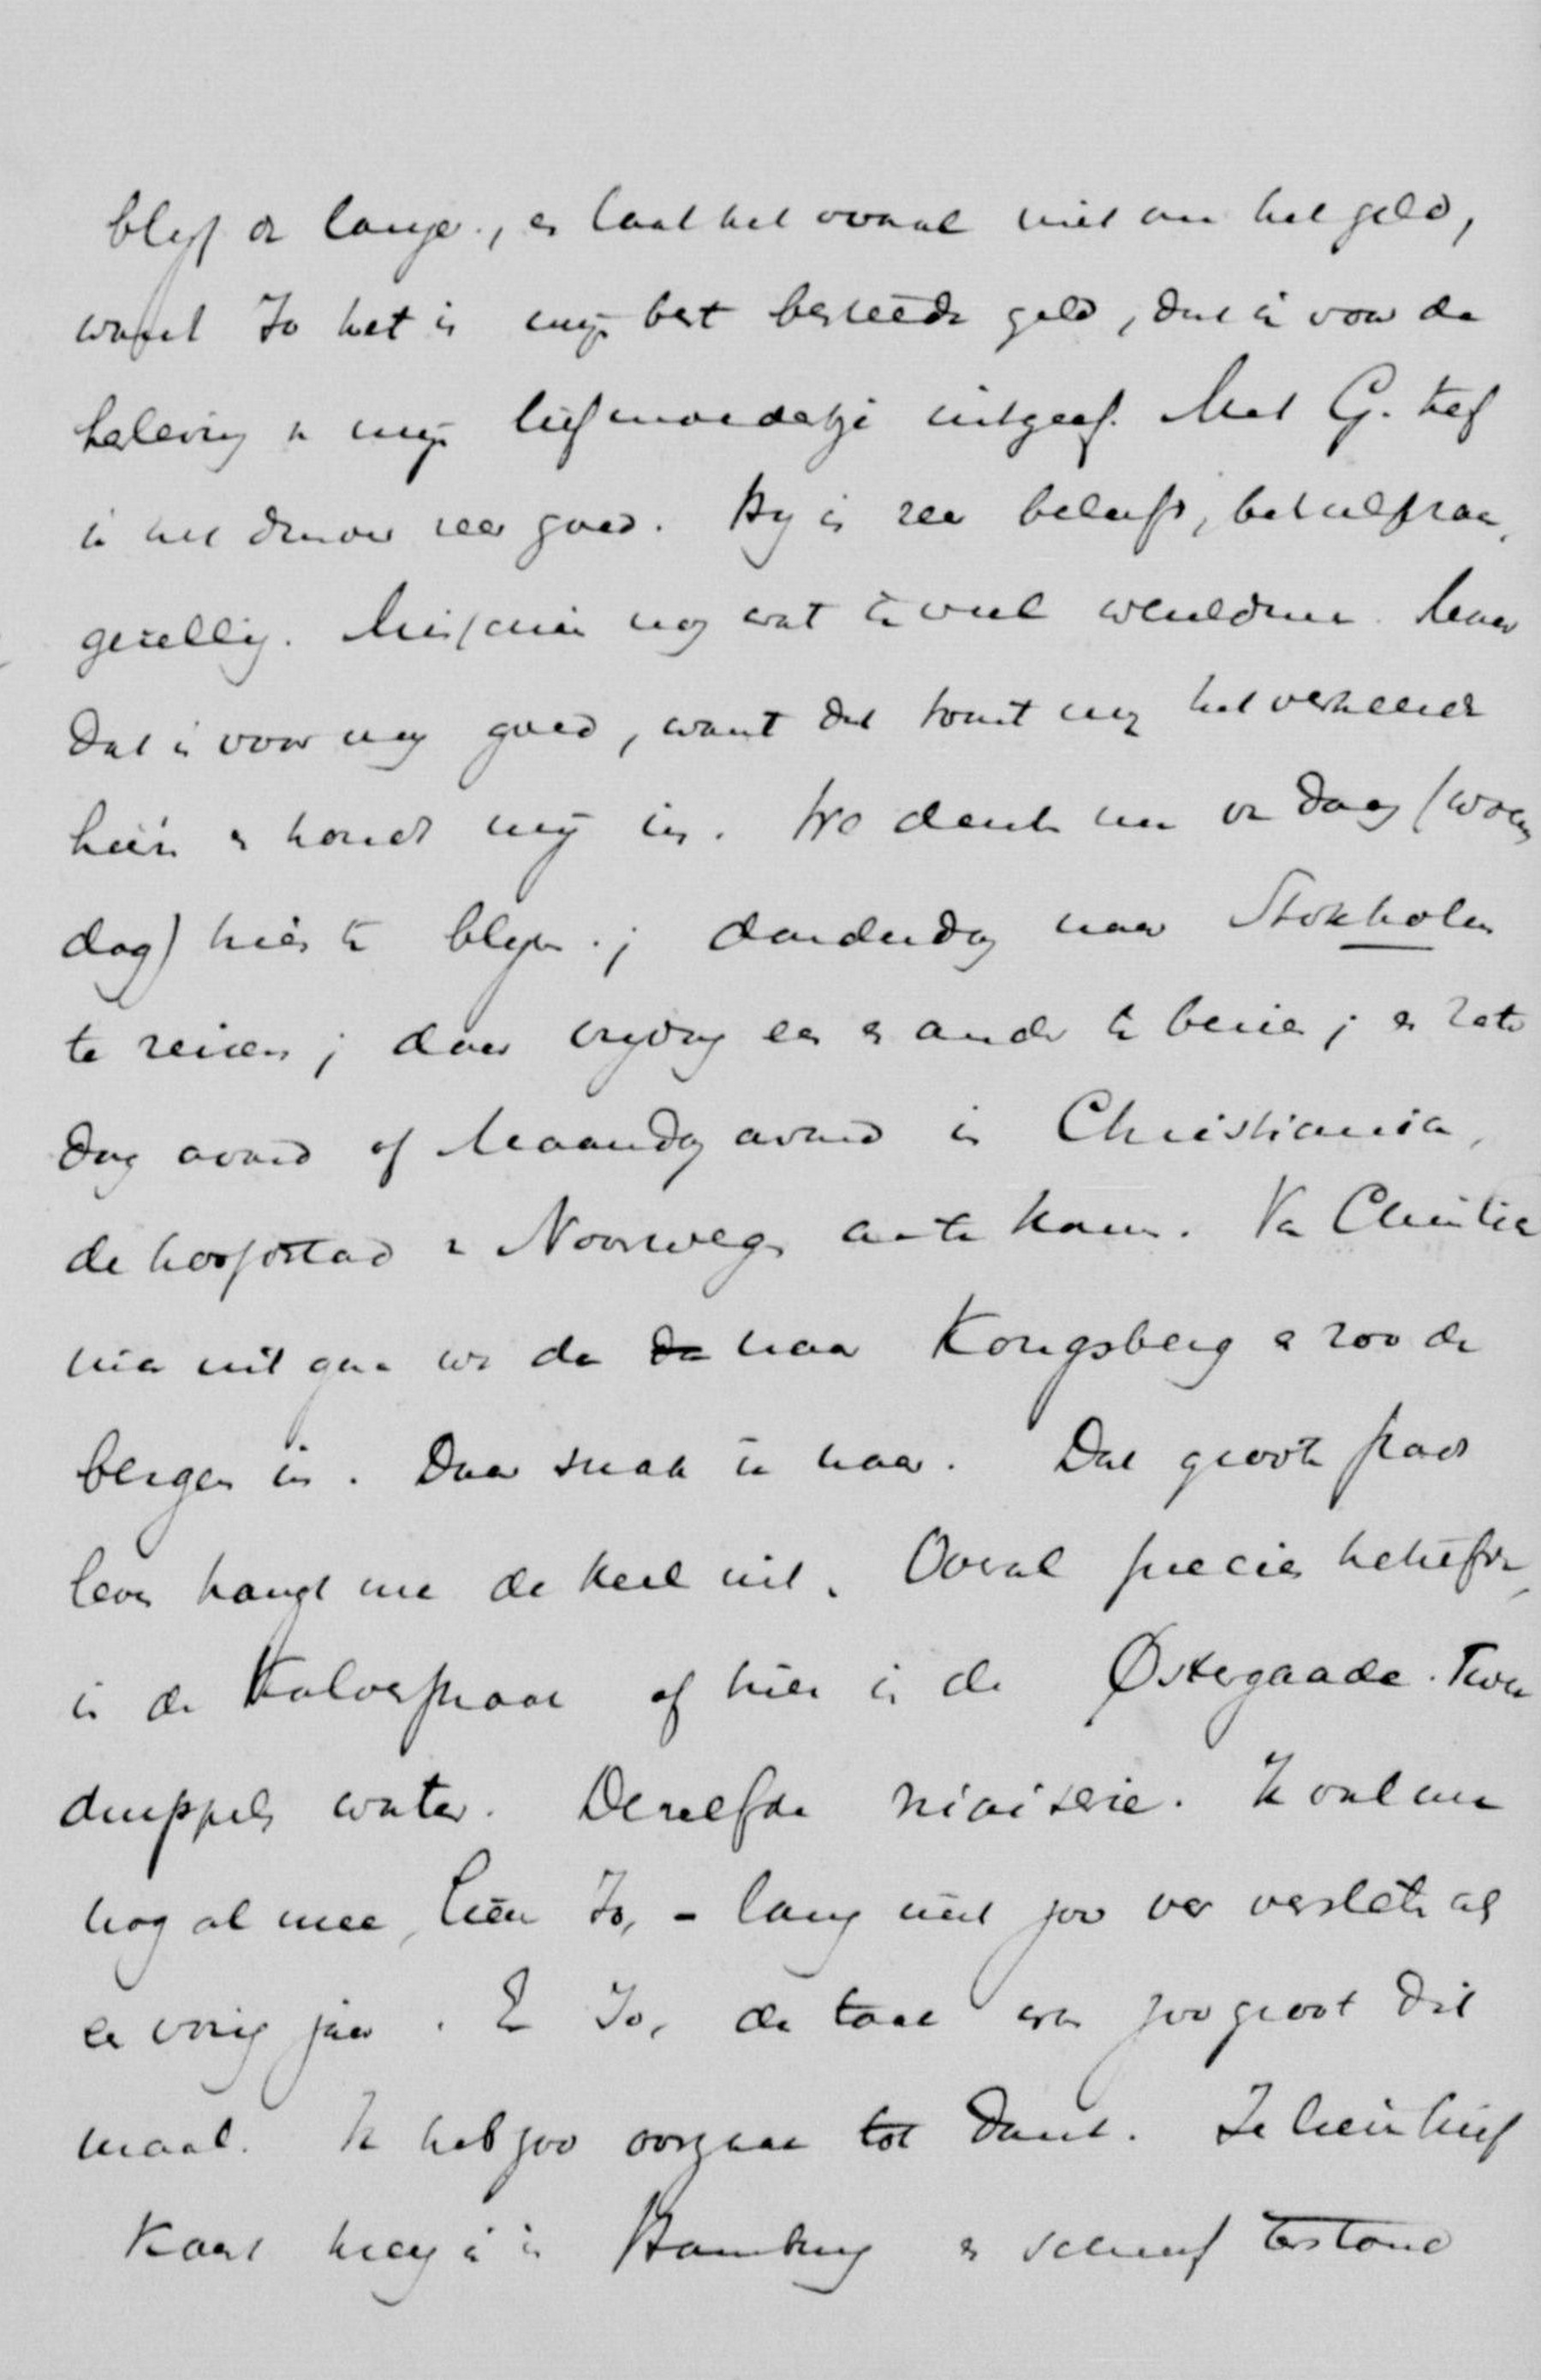 blyf er langer, en laat het vooral niet om het geld,
want Jo het is mijn best besteede geld, dat ik voor de
heleving v mijn liefmoedertje uitgeef. Met G. tref
ik het daarover zeer goed. Hij is zeer beleefd, behulpzaam,
gezellig. Misschien nog wat te veel weeldrig. Maar
dat is voor mij goed, want dat komt mij het verkeerde
heen en houdt mij in. We denken nu van daag (woens
dag) hier te blijven; donderdag naar Stokholm
te reizen; daar vrijdag een en ander te bezien; en Zater
dag avond of Maandag avond in Christiania,
de hoofdstad v Noorwegen aan te komen. Van Christia
nia uit gaan we dan naar Kongsberg en zoo de
bergen in. Daar snak ik naar. Dat groote stads
leven hangt me de keel uit. Overal precies hetzelfde,
is de Kalverstraat of hier is de Østergaade. Twee
druppels water. Dezelfde niaiserie. Ik val me
nog al mee, lieve Jo, – lang niet zoo ver versleten als
ik vorig jaar. En Jo, de taak was zoo groot dit
maal. Ik heb zoo voorzaak tot dank. Je lieve brief
kaart kreeg ik in Hamburg en schreef terstond